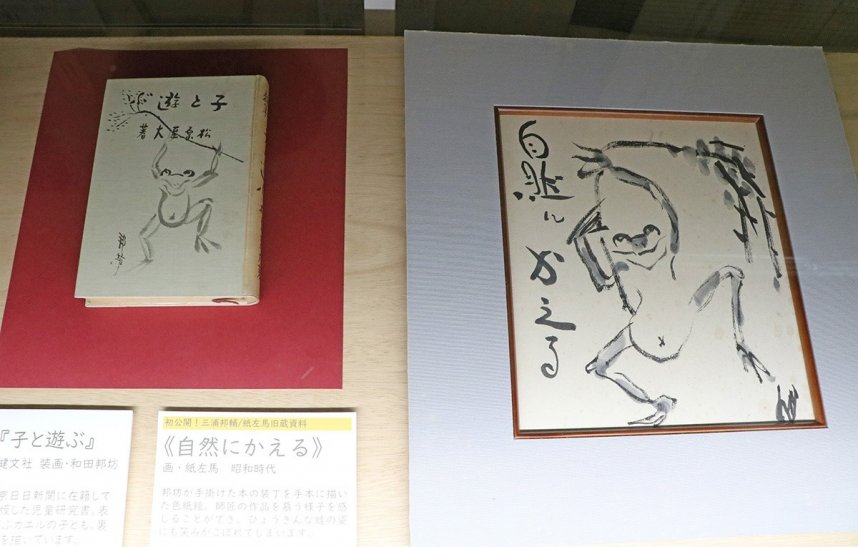 子と遊ぶ
松原至大著
自然に
かえる
『子と遊ぶ』
健文社 装画・和田邦坊
京日日新聞に在籍して
した児童研究書。表
ぶカエルの子ども、裏
を描いています。
初公開！三浦邦輔/紙左馬旧蔵資料
《自然にかえる》
画・紙左馬 昭和時代
邦坊が手掛けた本の装丁を手本に描い
た色紙絵。師匠の作品を慕う様子を感
じることができ、ひょうきんな蛙の姿
にも笑みがこぼれてしまいます。